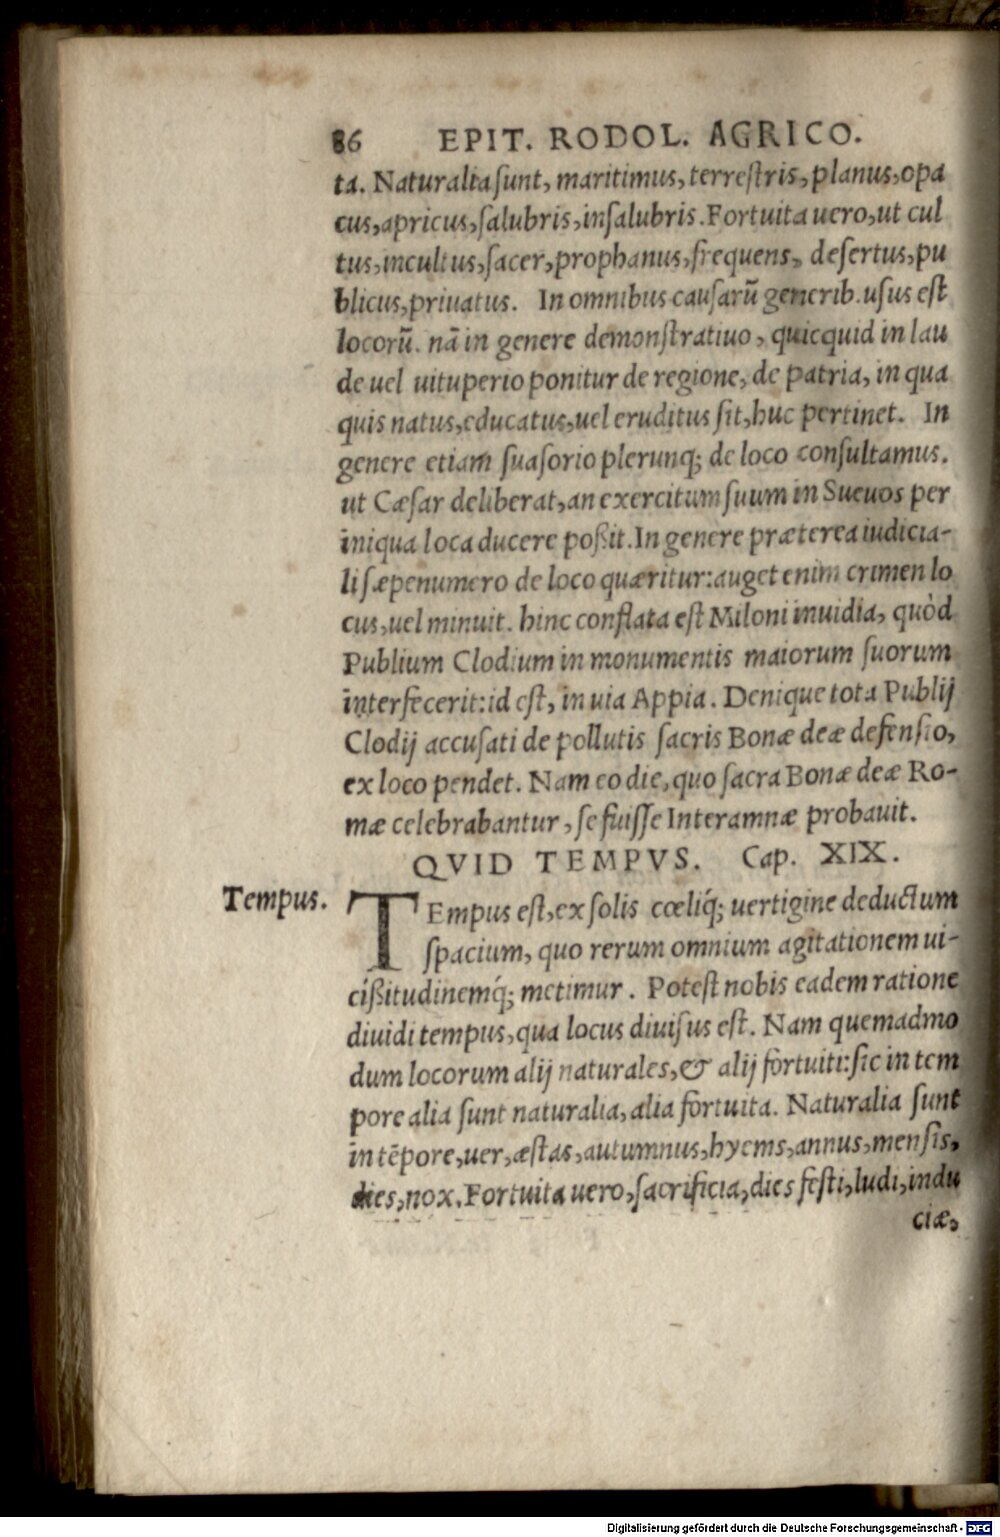 86 EPIT. RODOL. AGRICO.
ta. Naturalia sunt, maritimus, terrestris, planus, opa
cus, apricus, salubris, insalubris. Fortuita uero, ut cul
tus, incultus, sacer, prophanus, frequens, desertus, pu
blicus, priuatus. In omnibus causarũ generib. usus est
locorũ. nã in genere demonstratiuo, quicquid in lau
de uel uituperio ponitur de regione, de patria, in qua
quis natus, educatus, uel eruditus sit, huc pertinet. In
genere etiam suasorio plerunq; de loco consultamus.
ut Cæsar deliberat, an exercitum suum in Sueuos per
iniqua loca ducere poßit. In genere præterea iudicia-
li sæpenumero de loco quæritur: auget enim crimen lo
cus, uel minuit. hinc conflata est Miloni inuidia, quòd
Publium Clodium in monumentis maiorum suorum
interfecerit: id est, in uia Appia. Denique tota Publij
Clodij accusati de pollutis sacris Bonæ deæ defensio,
ex loco pendet. Nam eo die, quo sacra Bonæ deæ Ro-
mæ celebrabantur, se fuisse Interamnæ probauit.
QVID TEMPVS. Cap. XIX.
Tempus. TEmpus est, ex solis cœliq́; uertigine deductum
spacium, quo rerum omnium agitationem ui-
cißitudinemq́; metimur. Potest nobis eadem ratione
diuidi tempus, qua locus diuisus est. Nam quemadmo
dum locorum alij naturales, & alij fortuiti: sic in tem
pore alia sunt naturalia, alia fortuita. Naturalia sunt
in tẽpore, uer, æstas, autumnus, hyems, annus, mensis,
dies, nox. Fortuita uero, sacrificia, dies festi, ludi, indu
ciæ,
Digitalisierung gefördert durch die Deutsche Forschungsgemeinschaft - DFG